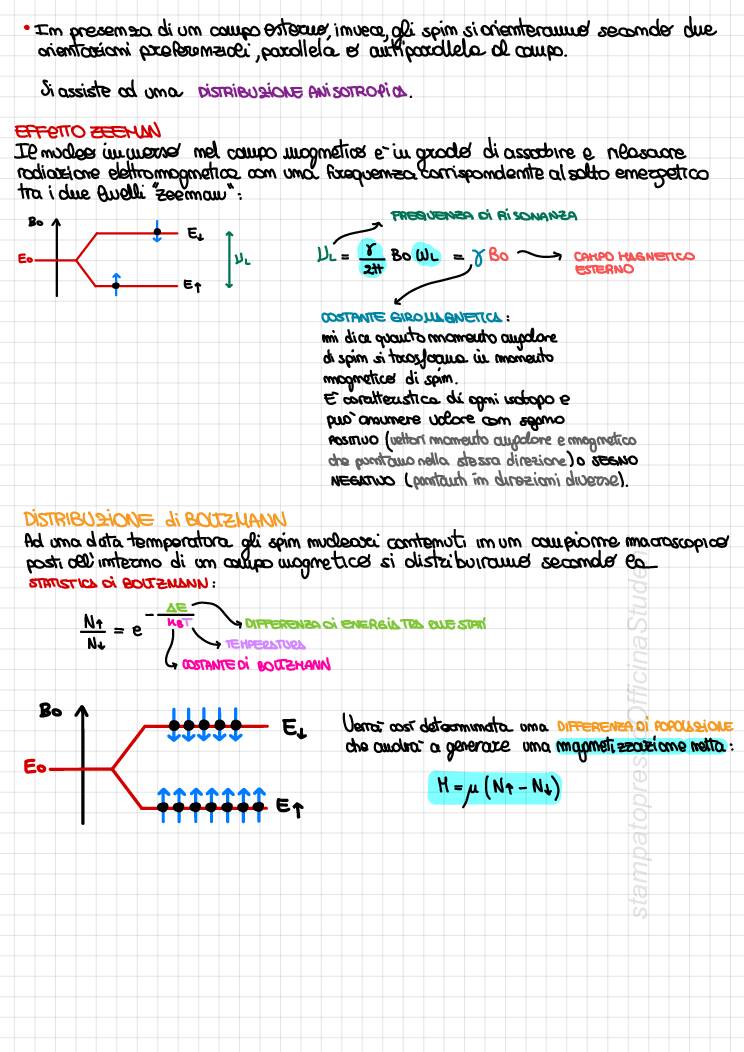 • In presenza di un campo esterno, invece, gli spin si orienteranno secondo due
orientazioni preferenziali, parallela o antiparallela al campo.
Si assiste ad una DISTRIBUZIONE ANISOTROPICA.
EFFETTO ZEEMAN
Il nucleo immerso nel campo magnetico è in grado di assorbire e rilasciare
radiazione elettromagnetica con una frequenza corrispondente al salto energetico
tra i due livelli "zeeman":
FREQUENZA DI RISONANZA
B0
E0
E↓
E↑
νL
νL = γ/2π B0 ωL = γ B0
CAMPO MAGNETICO
ESTERNO
COSTANTE GIROMAGNETICA:
mi dice quanto momento angolare
di spin si trasforma in momento
magnetico di spin.
È caratteristica di ogni isotopo e
può assumere valore con segno
POSITIVO (vettori momento angolare e magnetico
che puntano nella stessa direzione) o SEGNO
NEGATIVO (puntano in direzioni diverse).
DISTRIBUZIONE di BOLTZMANN
Ad una data temperatura gli spin nucleari contenuti in un campione macroscopico
posti all'interno di un campo magnetico si distribuiranno secondo la
STATISTICA DI BOLTZMANN:
N↑/N↓ = e^-ΔE/KBT
DIFFERENZA DI ENERGIA TRA DUE STATI
TEMPERATURA
COSTANTE DI BOLTZMANN
B0
E0
E↓
E↑
Verrà così determinata una DIFFERENZA DI POPOLAZIONE
che andrà a generare una magnetizzazione netta:
M = μ (N↑ - N↓)